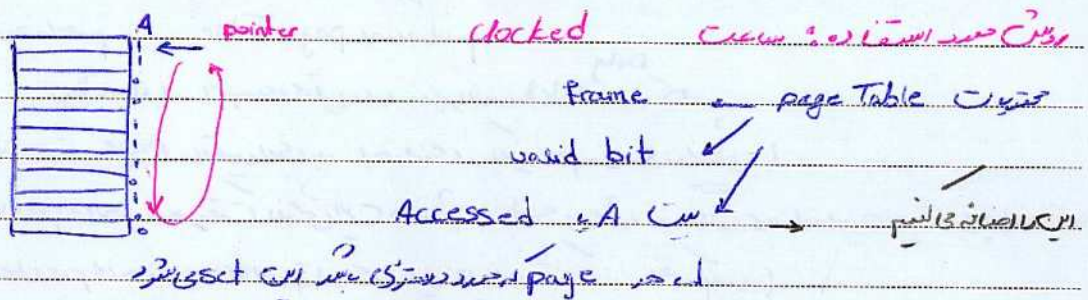 روش مورد استفاده: ساعت clocked
A pointer
محتویات page Table ← frame
valid bit
بیت A یا Accessed → این را اضافه می‌کنیم
هر page مورد دسترسی باشد این set می‌شود